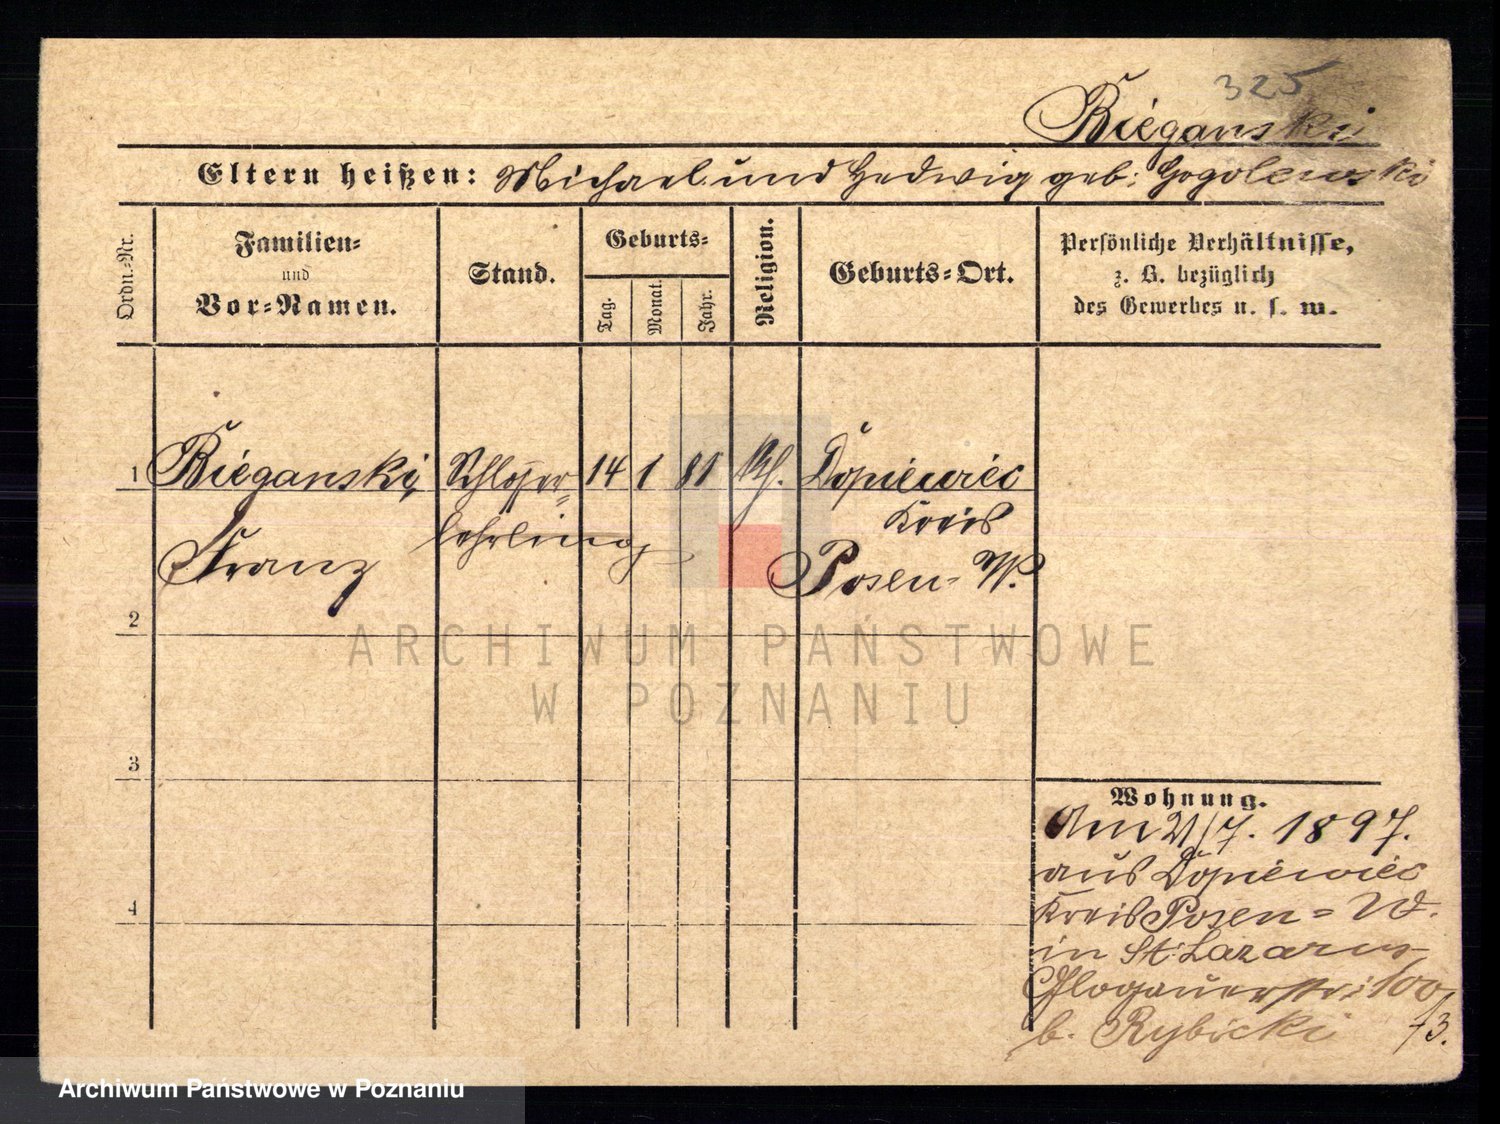 325
Bieganski
Eltern heißen: Michael und Hedwig geb: Gogolewski
Ordn.-Nr.
Familien-
und
Vor-Namen.
Stand.
Geburts-
Tag.
Monat.
Jahr.
Religion.
Geburts-Ort.
Persönliche Verhältnisse,
z. B. bezüglich
des Gewerbes u. s. w.
1 Bieganski, Schlosser= 14 1 81 Kth. Dopiewiec
lehrling Kreis
Franz Posen-W.
2
ARCHIWUM PAŃSTWOWE
W POZNANIU
3
Wohnung.
Am 21/7. 1897.
aus Dopiewiec
4
Kreis Posen=W.
in St: Lazarus
Glogauerstr: 100
b. Rybicki 73.
Archiwum Państwowe w Poznaniu